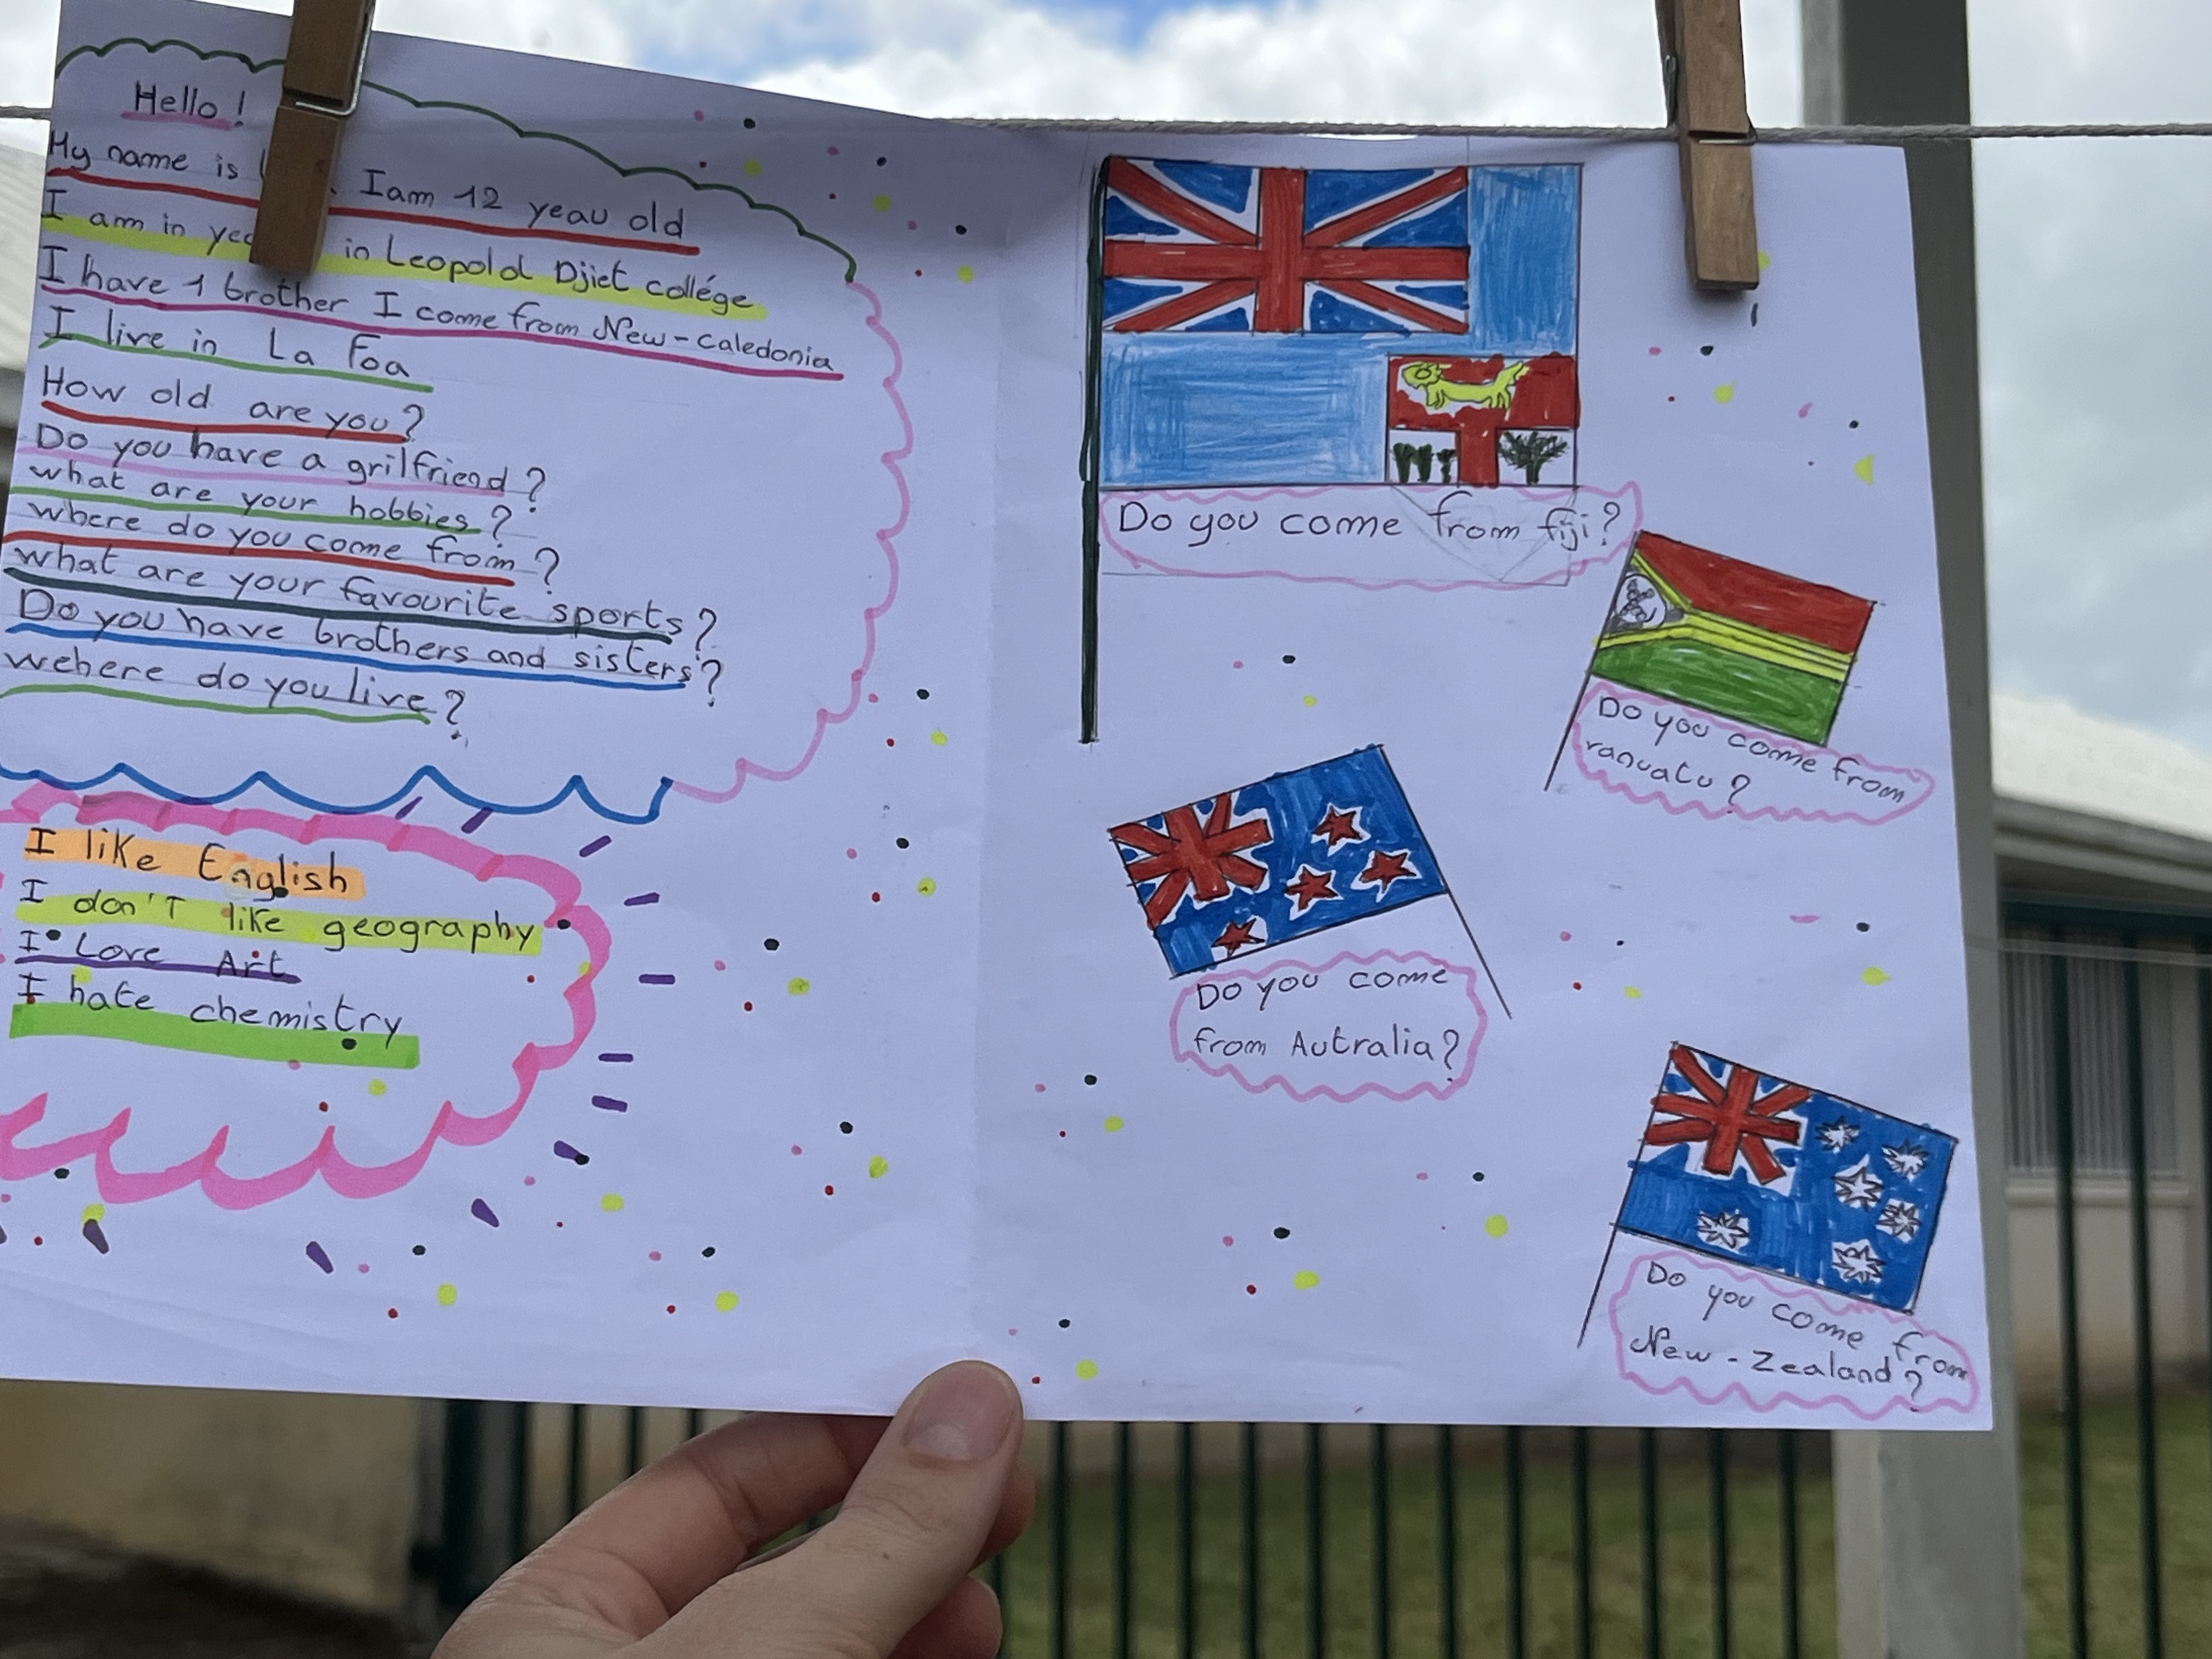 Hello!
My name is . I am 12 yeau old
I am in yea in Leopold Djiet collége
I have 1 brother I come from New-Caledonia
I live in La Foa
How old are you?
Do you have a grilfriend?
what are your hobbies?
where do you come from?
what are your favourite sports?
Do you have brothers and sisters?
wehere do you live?
I like English
I don't like geography
I Love Art
I hate chemistry
Do you come from fiji?
Do you come from
vanuatu?
Do you come
from Autralia?
Do you come from
New-Zealand?